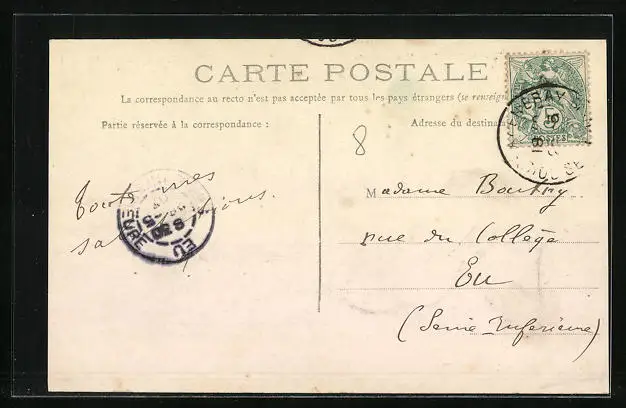 CARTE POSTALE
La correspondance au recto n'est pas acceptée par tous les pays étrangers (se renseig
Partie réservée à la correspondance :
Adresse du destinat
8
toutes mes
Madame Boutry
rue du Collège
Eu
(Seine Inférieure)
5
POSTES
EU